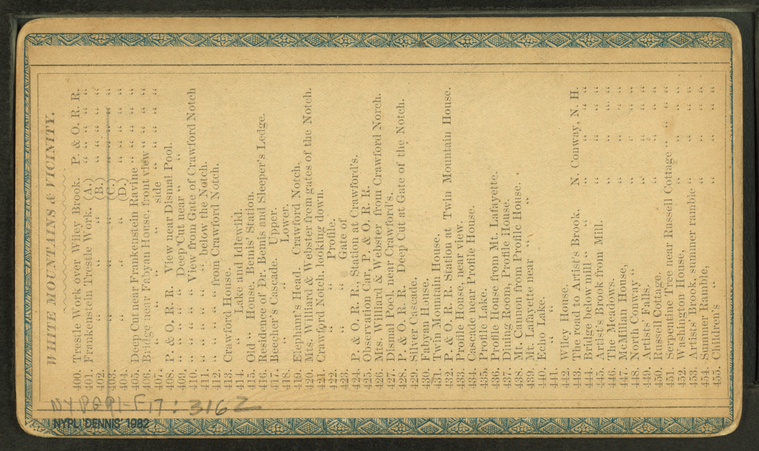 WHITE MOUNTAINS & VICINITY.
400. Trestle Work over Wiley Brook. P. & O. R. R.
401. Frankenstein Trestle Work. (A.) " " "
402. " " " (B.) " " "
403. " " " (C.) " " "
404. " " " (D.) " " "
405. Deep Cut near Frankenstein Ravine " " "
406. Bridge near Fabyan House, front view " " "
407. " " " " side " " " "
408. P. & O. R. R. View near Dismal Pool.
409. " " " " Deep Cut near " "
410. " " " " View from Gate of Crawford Notch
411. " " " " " below the Notch.
412. " " " " " from Crawford Notch.
413. Crawford House.
414. " Lake and Idlewild.
415. Old " House, Bemis' Station.
416. Residence of Dr. Bemis and Sleeper's Ledge.
417. Beecher's Cascade. Upper.
418. " " Lower.
419. Elephant's Head. Crawford Notch.
420. Mts. Williard & Webster from gates of the Notch.
421. Crawford Notch, looking down.
422. " " Profile.
423. " " Gate of
424. P. & O. R. R., Station at Crawford's.
425. Observation Car, P. & O. R. R.
426. Mts. Williard & Webster from Crawford Notch.
427. Dismal Pool, near Crawford's.
428. P. & O. R. R. Deep Cut at Gate of the Notch.
429. Silver Cascade.
430. Fabyan House.
431. Twin Mountain House.
432. P. & O. R. R., Station at Twin Mountain House.
433. Profile House, near view.
434. Cascade near Profile House.
435. Profile Lake.
436. Profile House from Mt. Lafayette.
437. Dining Room, Profile House.
438. Mt. Cannon from Profile House.
439. Mt. Lafayette near " "
440. Echo Lake.
441. " "
442. Wiley House.
443. The road to Artist's Brook. N. Conway, N. H.
444. "Bridge Denmill" " " " "
445. Artist's Brook from Mill. " " "
446. The Meadows. " " "
447. McMillan House, " " "
448. North Conway " " " "
449. Artists' Falls. " " "
450. Russell Cottage. " " "
451. Serpentine Tree near Russell Cottage " " "
452. Washington House, " " "
453. Artists' Brook, summer ramble " " "
454. Summer Ramble, " " "
455. Children's " " " "
NYPG91-F17: 3162
NYPL 'DENNIS' 1982